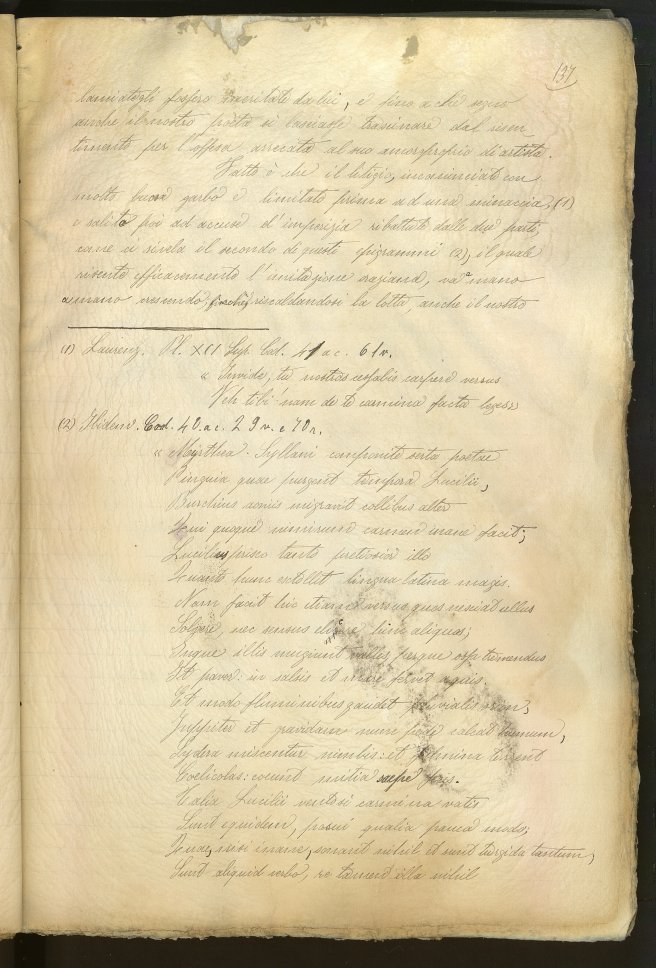 137
lanciategli fossero meritate da lui, e fino a che segno
anche il nostro poeta si lasciasse trascinare dal risen_
timento per l'offesa arrecata al suo amorproprio di artista.
Fatto è che il litigio, incominciato con
molto buon garbo e limitato prima ad una minaccia, (1)
e salito poi ad accuse d'imperizia ribattute dalle due parti,
come ci rivela il secondo di questi epigrammi (2), il quale
risente efficacemente l'imitazione oraziana, va mano
a mano crescendo, finchè, riscaldandosi la lotta, anche il nostro
(1) Laurenz. Pl. XCI Sup. Cod. 41 ac. 61v.
" Invide, tu nostros cessabis carpere versus
Veh tibi! nam de te carmina facta leges"
(2) Ibidem. Cod. 40. ac. 29 v. e 70 r.
" Myrthea Syllani componite serta poetae
Pinguia quae purgent tempora Lucilii,
Burchius aoniis migravit collibus alter
Qui quoque nunc carmen inane facit;
Lucilius prisco tanto pretiosior illo
Quanto hunc extollit lingua latina magis.
Nam facit hic etiam versus quos nesciat ullus
Solvere, nec sensus elige hinc aliquos;
Inque illis mugiunt valles perque orsa tremendus
It pavor: in salsis et mare fervet aquis.
Et modo fluminibus gaudet pluvialis
Juppiter et gravidam nunc pede calcat humum,
Sydera miscentur nimbis: et flumina terrent
Coelicolas: coeunt mitia saepe feris.
Talia Lucilii ventosi carmina vatis
Sunt equidem, posui qualia pauca modo;
Quae, nisi inane, sonant nihil et sunt turgida tantum,
Sunt aliquid verbo, re tamen illa nihil